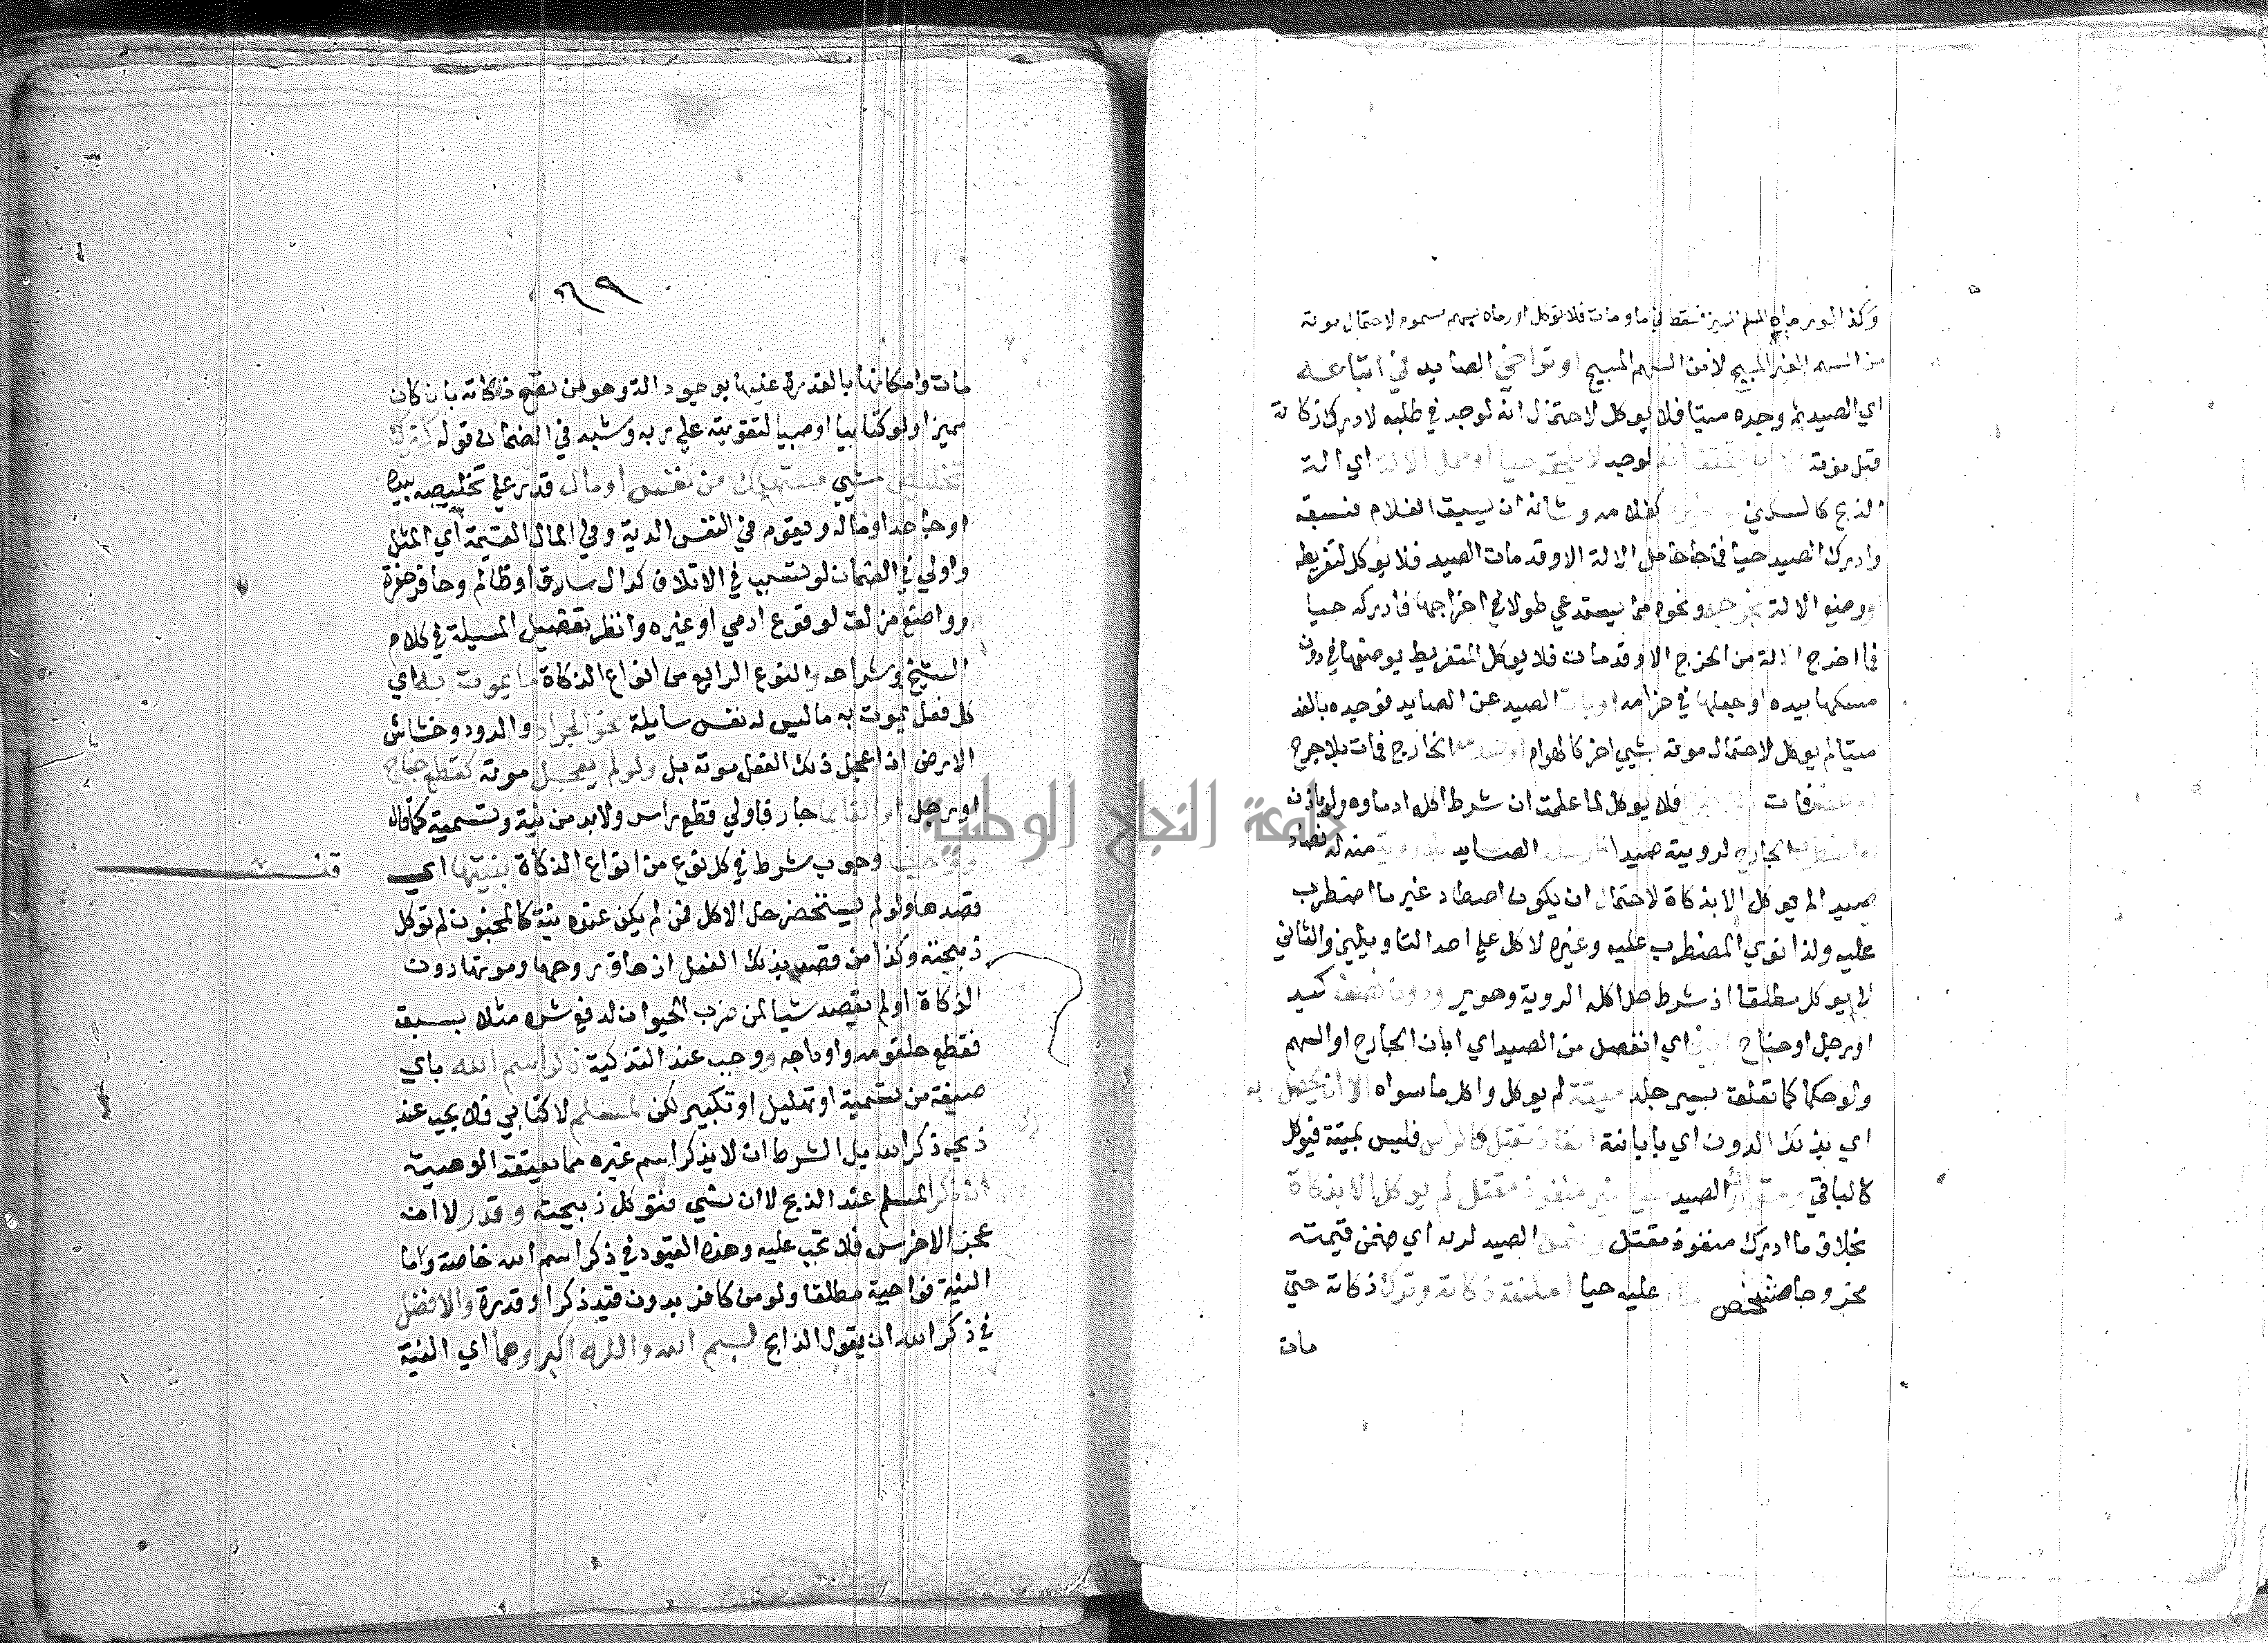 وكذا لو رماه المسلم المميز فسقط في ماء ومات فلا يوكل او رماه بسهم مسموم لاحتمال موته
من السهم الغير المبيح لا من السهم المبيح او تراخي الصايد في اتباعه
اي الصيد ثم وجده ميتا فلا يوكل لاحتمال انه لو جد في طلبه لادرك ذكاته
قبل موته الا ان يتحقق انه لو جد لا يلحقه حيا او حمل الالة اي الة
الذبح كالسكين مع غيره كغلامه وشانه ان يسبق الغلام فسبقه
وادرك الصيد حيا فما جا حامل الالة الا وقد مات الصيد فلا يوكل لتفريطه
ووضع الالة بخرجه ونحوه مما يستدعي طولا في اخراجها فادركه حيا
فما اخرج الالة من الخرج الا وقد مات فلا يوكل لتفريط بوضعها في دون
مسكها بيده او جعلها في حزامه او بات الصيد عن الصايد فوجده بالغد
ميتا لم يوكل لاحتمال موته بشي اخر كالهوام او صدمه الخارج فمات بلا جرح
فمات فلا يوكل لما علمت ان شرط اكله ادماوه ولو باذن
الجارح لروية صيد الصايد منه له فصاد
صيد لم يوكل الا بذكاة لاحتمال ان يكون اصطاد غير ما اضطرب
عليه ولذا نوي المضطرب عليه وغيره لاكل علي احد التاويلين والثاني
لا يوكل مطلقا اذ شرط حل اكله الروية وهو ير ودون نصف كيد
او رجل او جناح اي انفصل من الصيد اي ابان الجارح او السهم
ولو حكما كما تعلقه بيسير جلد ميتة لم يوكل واكل ما سواه الا ان يحصل به
اي بذلك الدون اي بابانته انفاذ مقتل كالراس فليس بميتة فيوكل
كالباقي الصيد حيا غير منفوذ مقتل لم يوكل الا بذكاة
بخلاف ما ادرك منفوذ مقتل وضمن الصيد لربه اي ضمن قيمته
مجروحا شخص عليه حيا امكنته ذكاته وترك ذكاته حتي
مات
٦٩
مات وامكانها بالقدرة عليها بوجود الة وهو من تصح ذكاته بان كان
مميزا ولو كتابيا او صبيا لتفويته علي ربه وشبه في الضمان قوله كترك
تخليص شي مستهلك من نفس او مال قدر علي تخليصه بيده
او جاهه او ماله ويقوم في النفس الدية وفي المال القيمة اي المثل
واولي في الضمان لو تسبب في الاتلاف كدال سارق او ظالم وحافر حفرة
وواضع مزلق لوقوع ادمي او غيره وانظر تفصيل المسيلة في كلام
الشيخ وشراحه والنوع الرابع من انواع الذكاة ما يموت به اي
كل فعل يموت به ما ليس له نفس سايلة نحو الجراد والدود وخشاش
الارض اذا عجل ذلك الفعل موته بل ولو لم يعجل موته كقطع جناح
او رجل او القا بما حار فاولي قطع راس ولابد من نية وتسمية كما قال
ووجب وجوب شرط في كل نوع من انواع الذكاة بنيتها اي
قصدها ولو لم يستحضر حل الاكل فمن لم يكن عنده نية كالمجنون لم توكل
ذبيحته وكذا من قصد بذلك الفعل ازهاق روحها وموتها دون
الذكاة او لم يقصد شيا كمن ضرب الحيوان لدفع شره مثلا بسيفه
فقطع حلقومه واوداجه ووجب عند التذكية ذكر اسم الله باي
صيغة من تسمية او تهليل او تكبير لكن لمسلم لا كتابي فلا يجب عند
ذبحه ذكر الله بل الشرط ان لا يذكر اسم غيره مما يعتقد الوهيته
ان ذكر المسلم عند الذبح لا ان نسي فتوكل ذبيحته وقدر لا ان
عجز الاخرس فلا تجب عليه وهذه القيود في ذكر اسم الله خاصة واما
النية فواجبة مطلقا ولو من كافر بدون قيد ذكر او قدرة والافضل
في ذكر الله ان يقول الذابح بسم الله والله اكبر وهما اي النية
قف
جامعة النجاح الوطنية